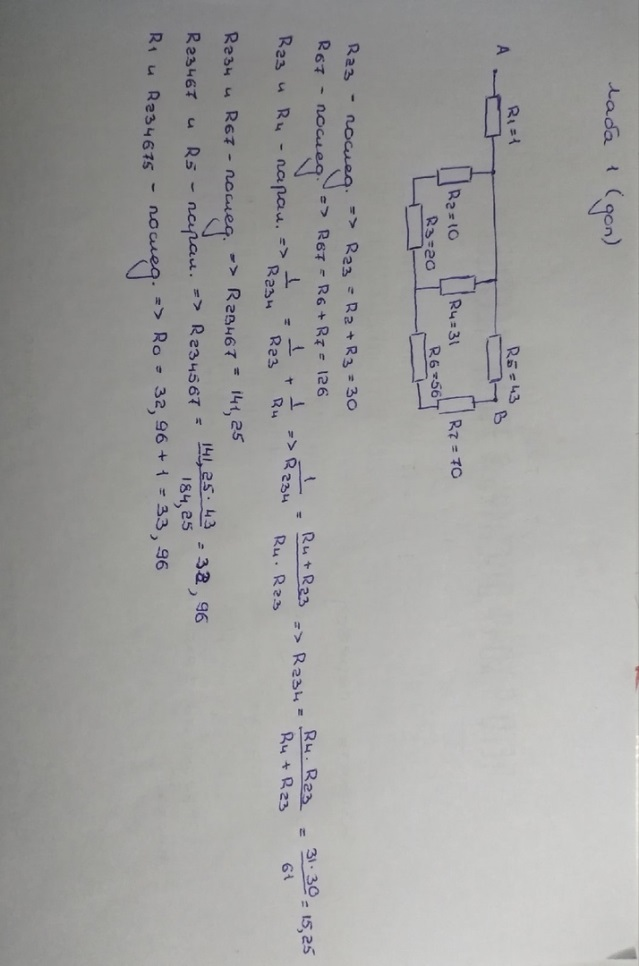 лаба 1 (доп)
A
R1=1
R2=10
R3=20
R4=31
R5=43
B
R6=56
R7=70
R23 - послед. => R23 = R2 + R3 = 30
R67 - послед. => R67 = R6 + R7 = 126
R23 и R4 - парал. => 1/R234 = 1/R23 + 1/R4 => 1/R234 = R4 + R23 / R4 · R23 => R234 = R4 · R23 / R4 + R23 = 31 · 30 / 61 = 15,25
R234 и R67 - послед. => R23467 = 141,25
R23467 и R5 - парал. => R234567 = 141,25 · 43 / 184,25 = 32,96
R1 и R234675 - послед. => R0 = 32,96 + 1 = 33,96